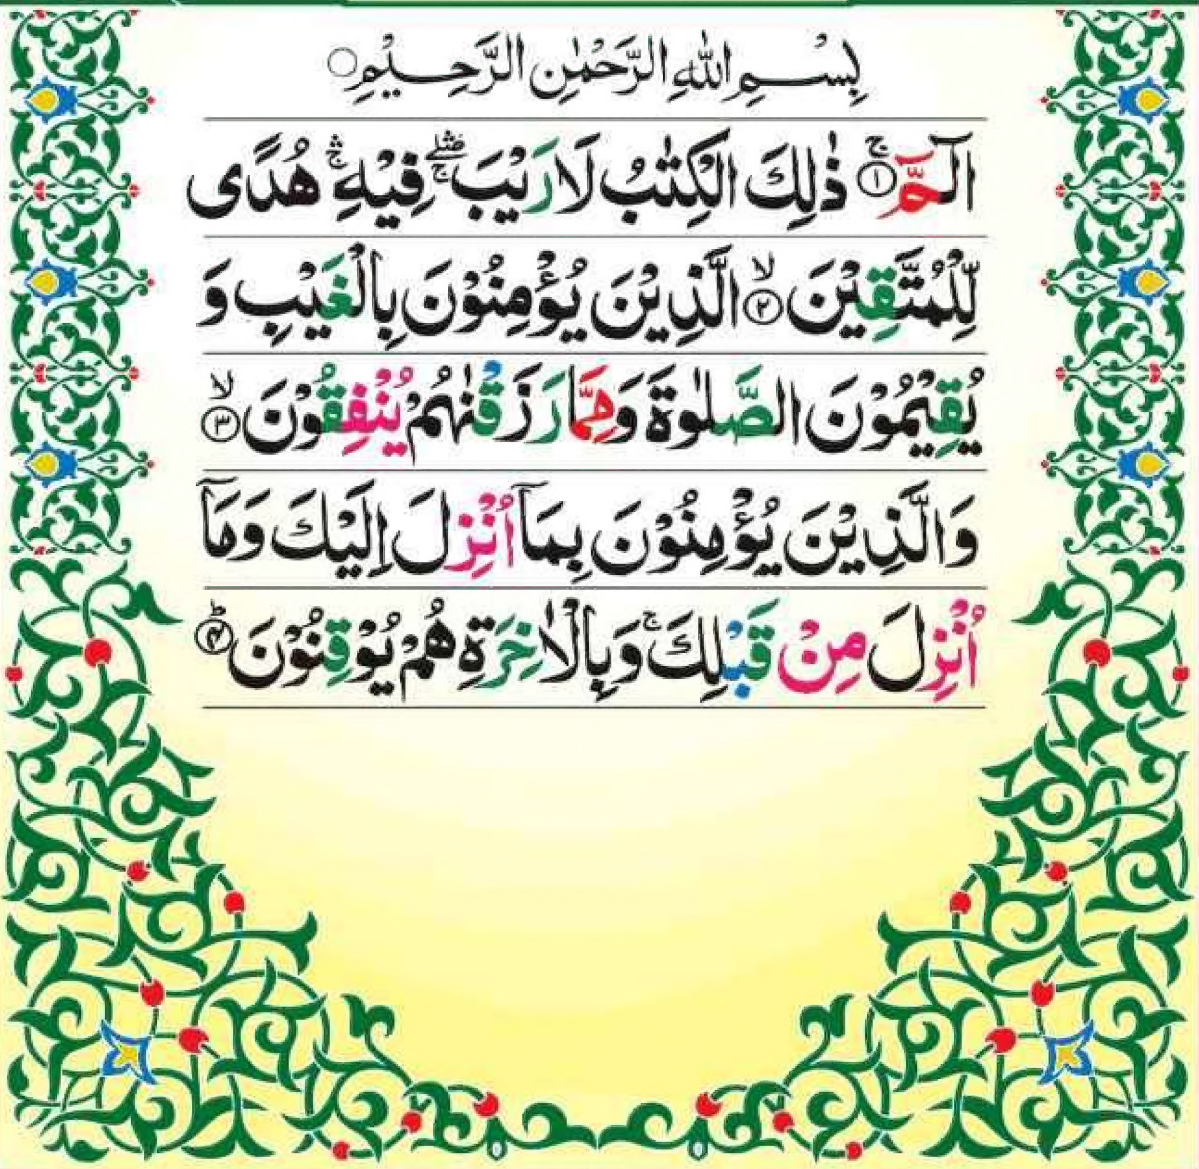 بِسْمِ اللهِ الرَّحْمٰنِ الرَّحِيْمِ ○
الٓمّٓ ۚ﴿۱﴾ ذٰلِكَ الْكِتٰبُ لَا رَيْبَ ۛۖۚ فِيْهِ ۛۚ هُدًى
لِّلْمُتَّقِيْنَ ۙ﴿۲﴾ الَّذِيْنَ يُؤْمِنُوْنَ بِالْغَيْبِ وَ
يُقِيْمُوْنَ الصَّلٰوةَ وَمِمَّا رَزَقْنٰهُمْ يُنْفِقُوْنَ ۙ﴿۳﴾
وَالَّذِيْنَ يُؤْمِنُوْنَ بِمَاۤ اُنْزِلَ اِلَيْكَ وَمَاۤ
اُنْزِلَ مِنْ قَبْلِكَ ۚ وَبِالْاٰخِرَةِ هُمْ يُوْقِنُوْنَ ؕ﴿۴﴾